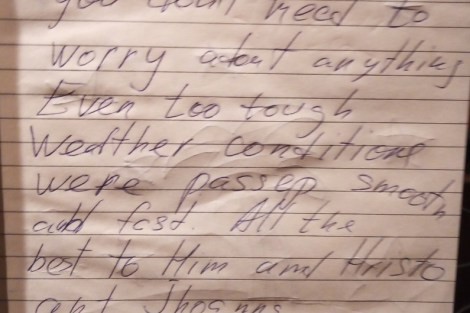 you don't need to
worry about anything
Even too tough
Weather conditions
were passed smooth
and fast. All the
best to Him and Hristo
and Jhoanna